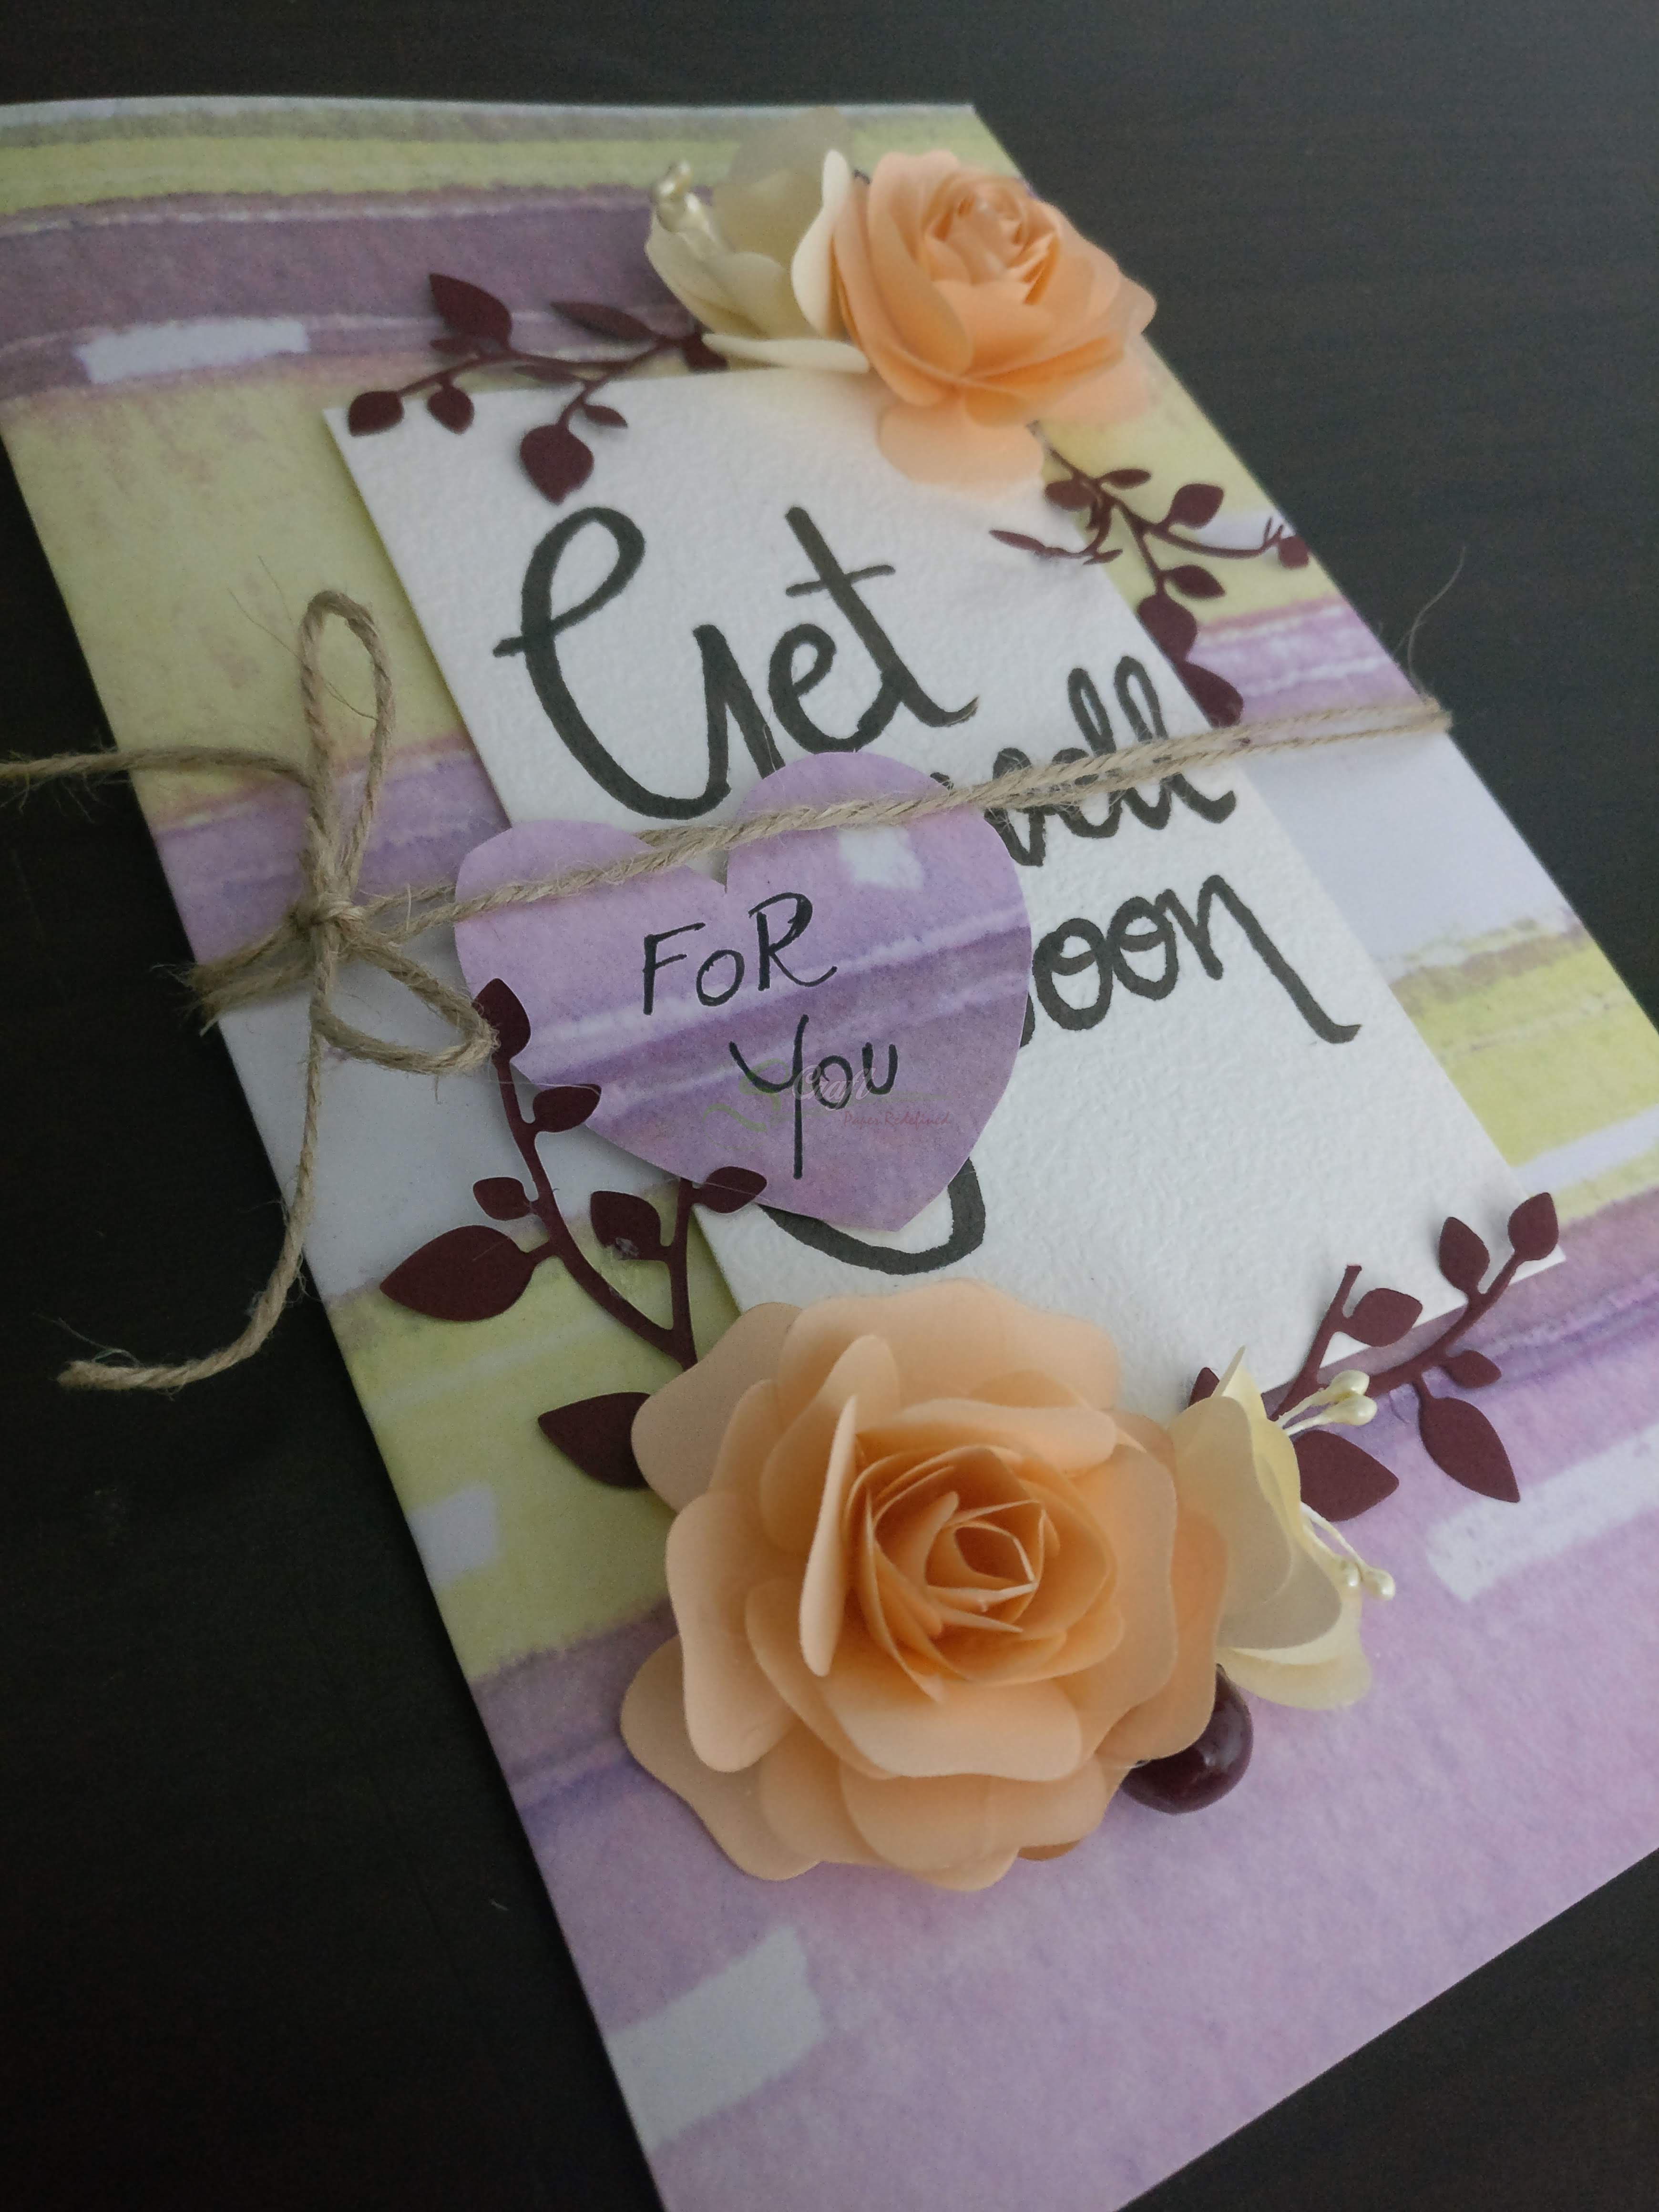 Get
well
oon
FOR
You
Craft
Paper Redefined